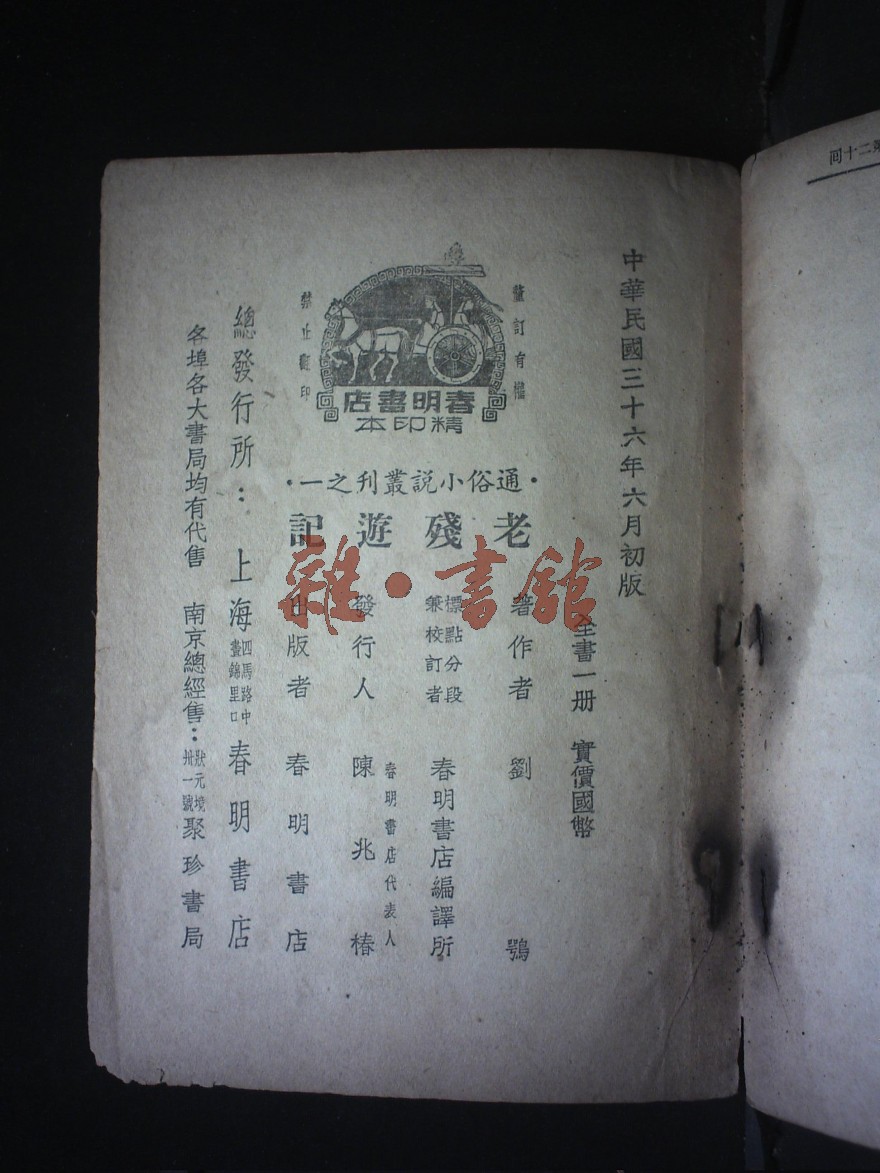 第二十回
中華民國三十六年六月初版
全書一册 實價國幣
董訂有權
禁止翻印
春明書店
精印本
·通俗小說叢刊之一·
老殘遊記
著作者 劉鶚
標點分段
兼校訂者 春明書店編譯所
春明書店代表人
發行人 陳兆椿
出版者 春明書店
總發行所： 上海 四馬路中 晝錦里口 春明書店
各埠各大書局均有代售 南京總經售： 狀元境 卅一號 聚珍書局
雜·書館